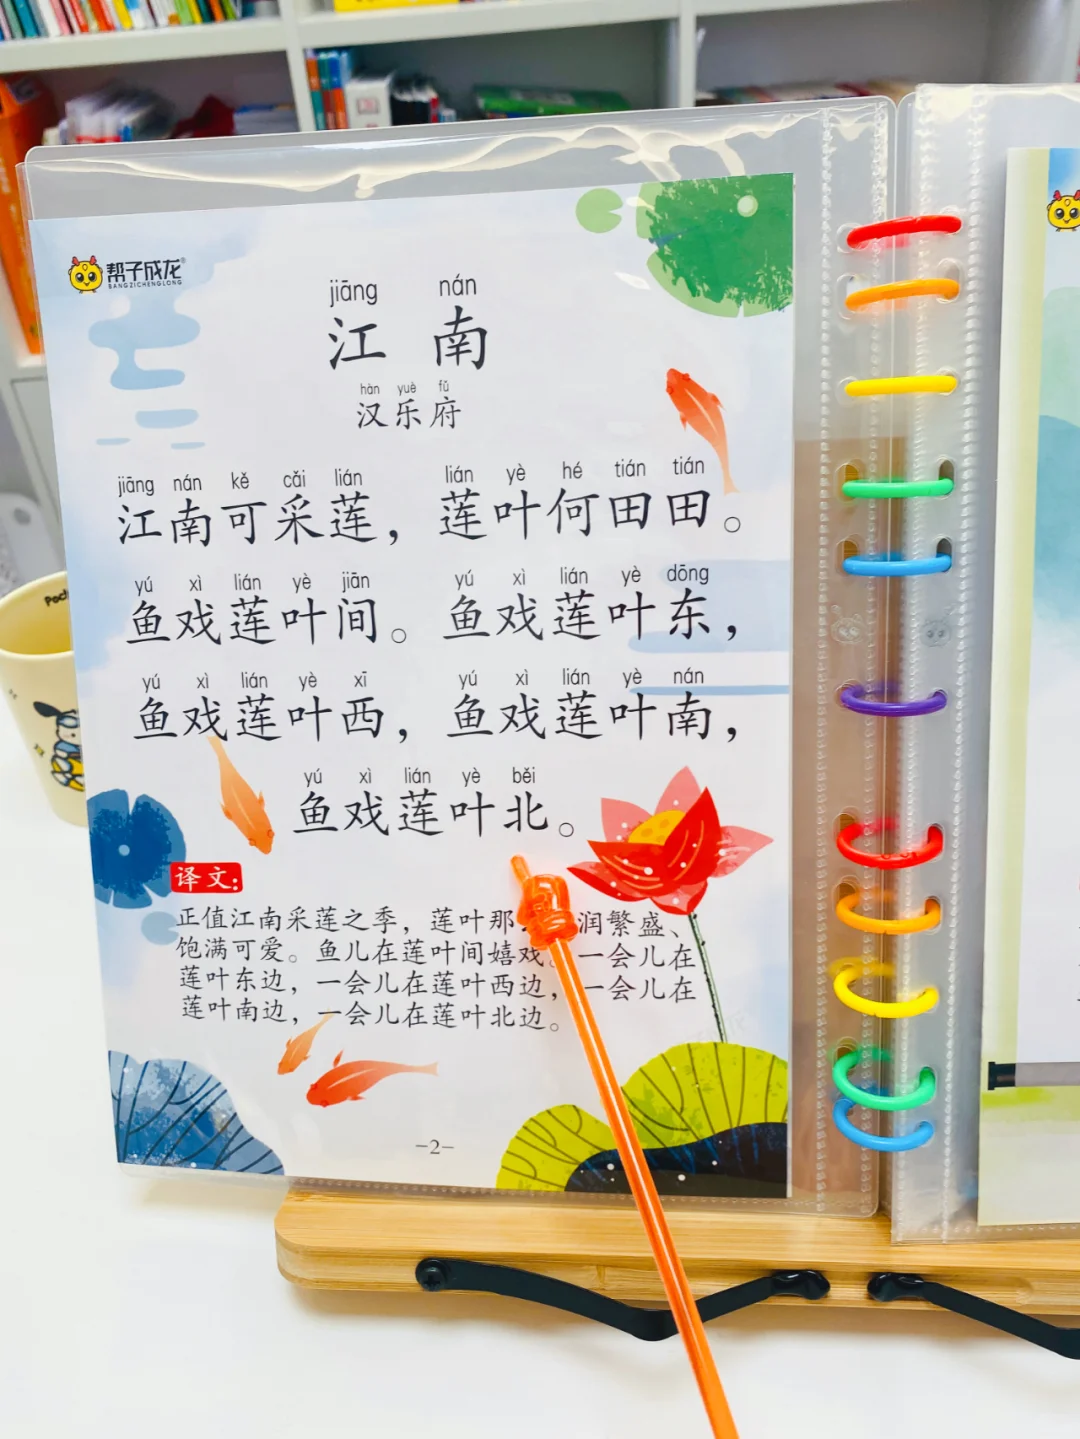 帮子成龙®
BANGZICHENGLONG
jiāng nán
江 南
hàn yuè fǔ
汉乐府
jiāng nán kě cǎi lián lián yè hé tián tián
江南可采莲，莲叶何田田。
yú xì lián yè jiān yú xì lián yè dōng
鱼戏莲叶间。鱼戏莲叶东，
yú xì lián yè xī yú xì lián yè nán
鱼戏莲叶西，鱼戏莲叶南，
yú xì lián yè běi
鱼戏莲叶北。
译文：
正值江南采莲之季，莲叶那 润繁盛、
饱满可爱。鱼儿在莲叶间嬉戏。一会儿在
莲叶东边，一会儿在莲叶西边，一会儿在
莲叶南边，一会儿在莲叶北边。
-2-